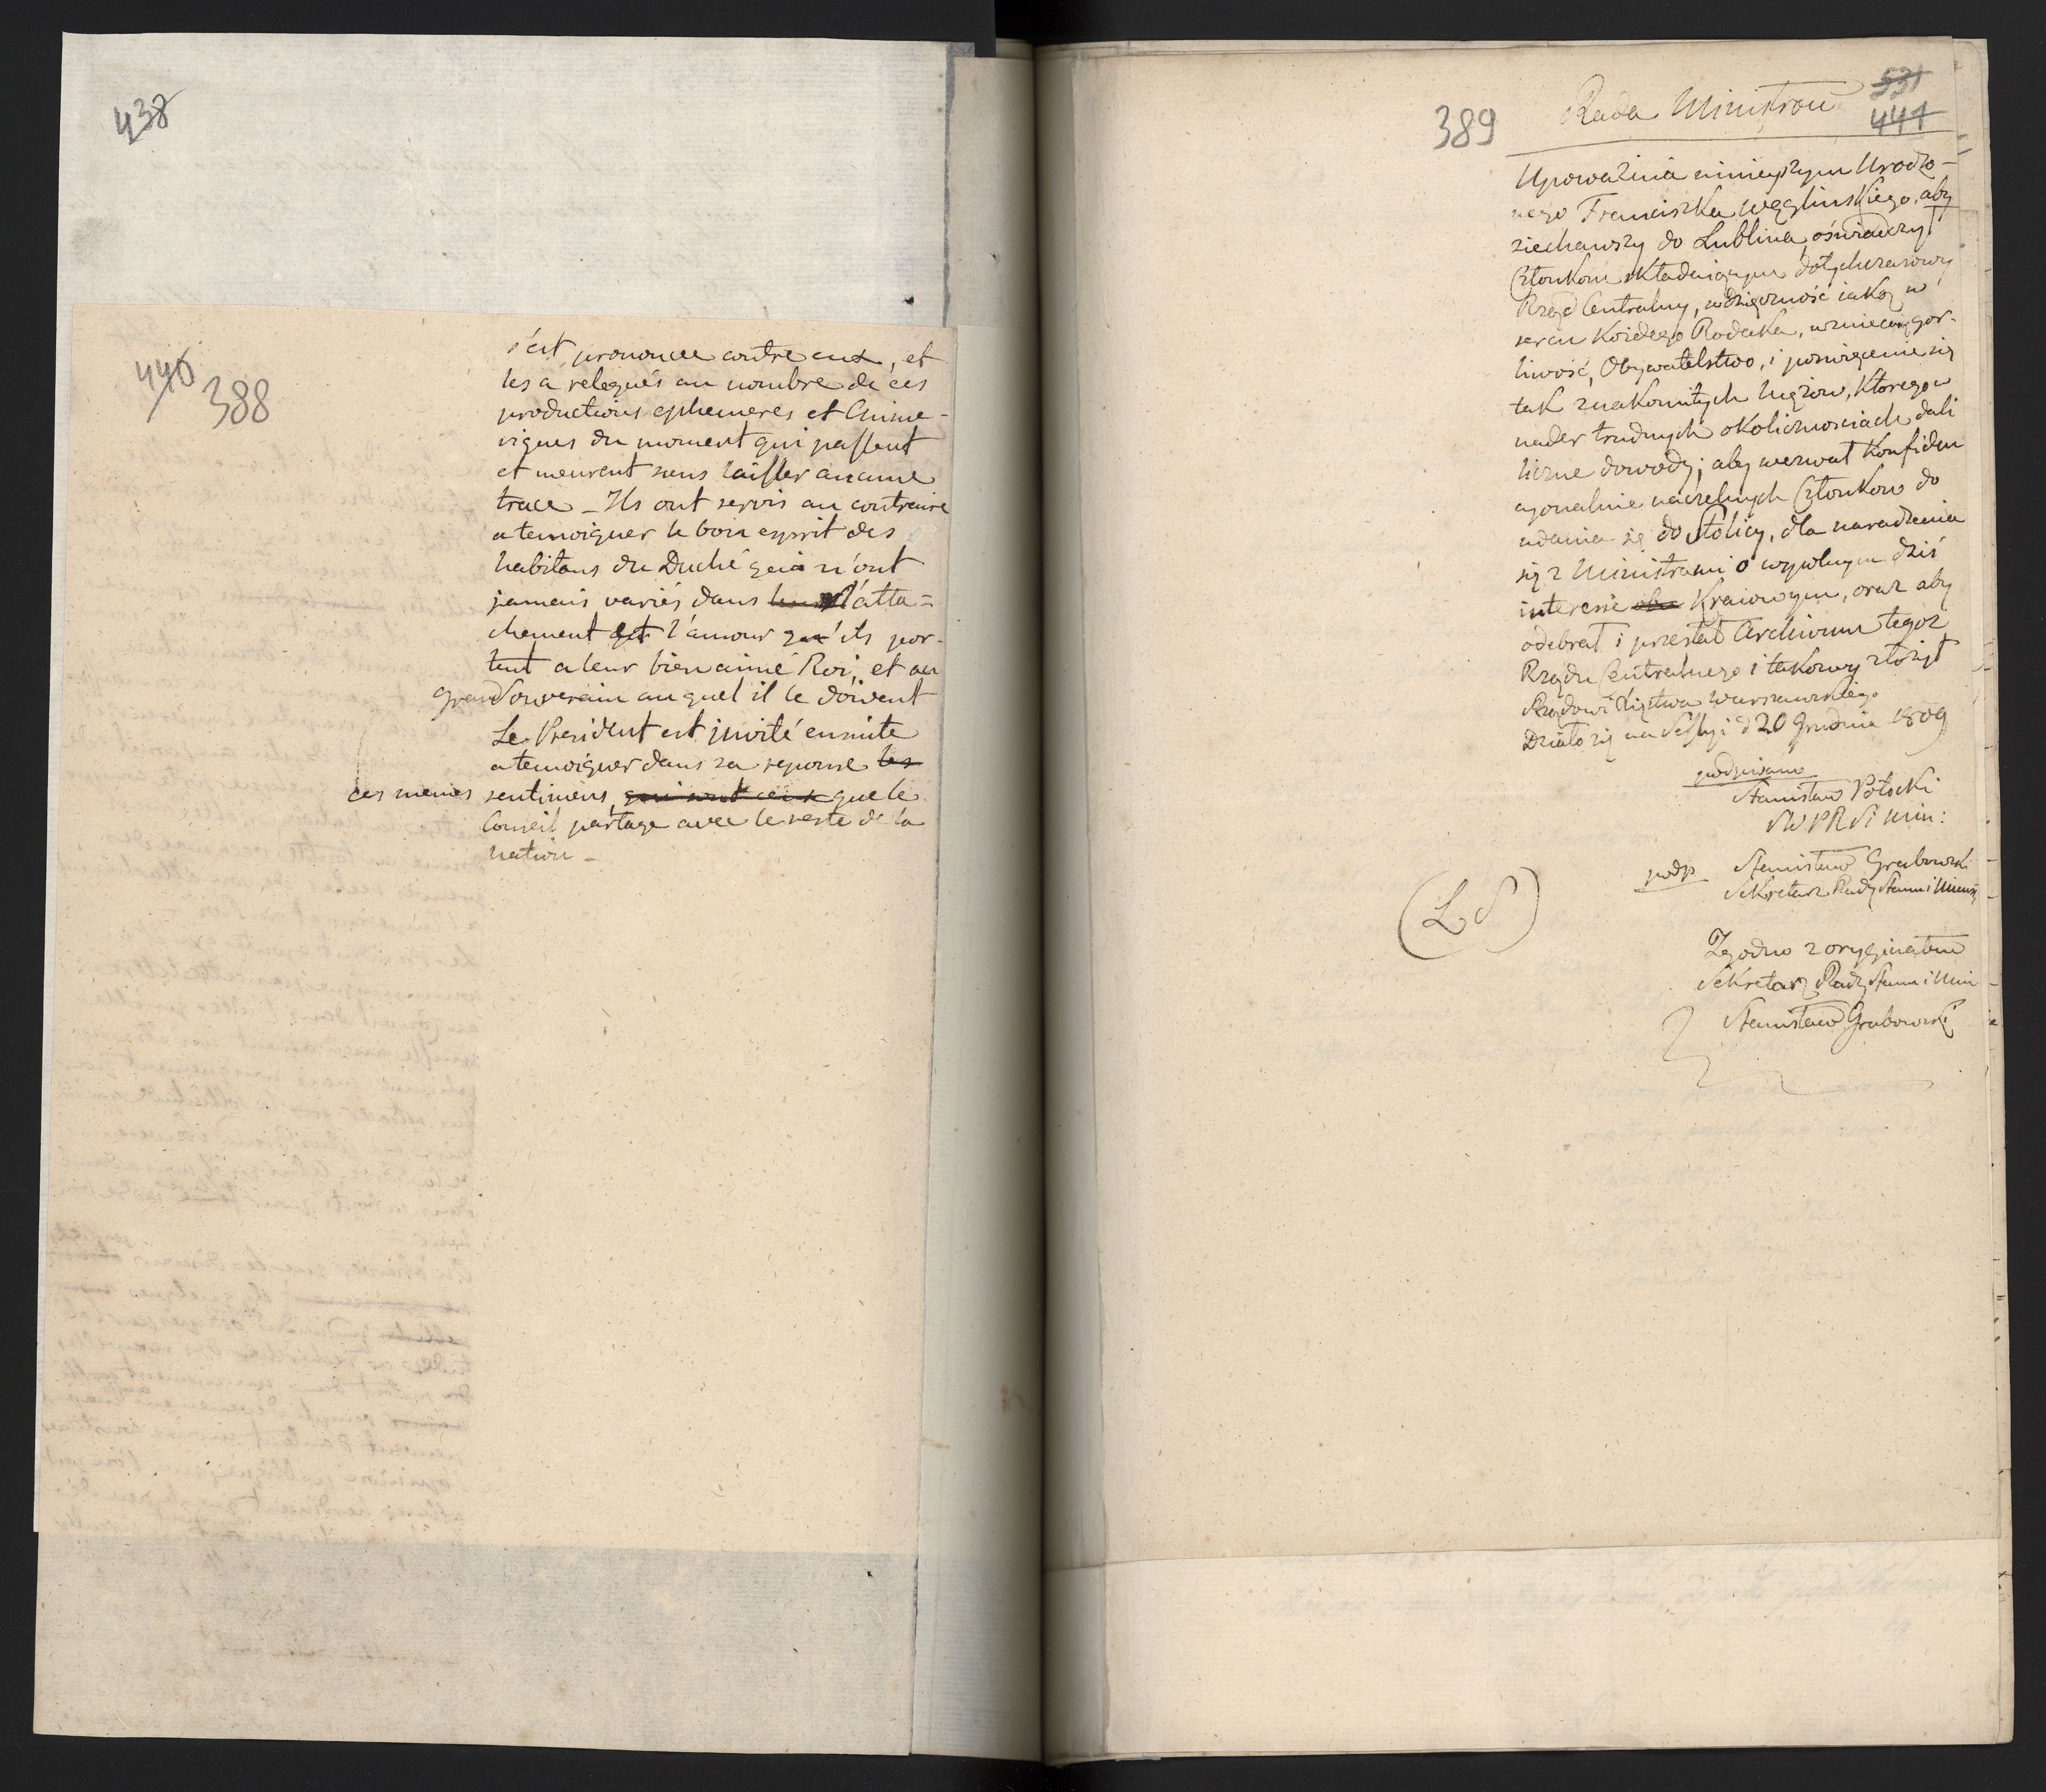 438
440
388
s'est prononcée contre eux, et
les a relegués au nombre de ces
productions ephemeres et Chime-
riques du moment qui passent
et meurent sans laisser aucune
trace – Ils ont servis au contraire
a temoigner le bon esprit des
habitans du Duché qui n'ont
jamais variés dans l'atta=
chement et l'amour qu'ils por-
tent a leur bien aimé Roi, et au
grand Souverain au quel il le doivent
Le President est invité ensuite
a temoigner dans sa reponse les
ces memes sentimens, qui sont ceux que le
Conseil partage avec le reste de la
nation –
531
441
389
Rada Ministrow
Upoważnia ninieyszym Urodzo-
nego Franciszka Węglinskiego, aby
ziechawszy do Lublina, oświadczył
Członkom składaiącym dotychczasowy
Rząd Centralny, wdzięczność iaką w
sercu Każdego Rodaka, wzniecają gor-
liwość, Obywatelstwo, i poswięcenie się
tak znakomitych Mężow, Ktorego w
nader trudnych okolicznosciach dali
liczne dowody; aby wezwał Konfiden
cyonalnie naczelnych Członkow do
udania się do Stolicy, dla naradzenia
się z Ministrami o wspolnym dziś
interesie Kraiowym, oraz aby
odebrał i przesłał Archiwum tegoż
Rządu Centralnego i takowy złożył
Rządowi Xięstwa Warszawskiego
Działo się na Sessyi d 20 Grudnia 1809
podpisano
Stanisław Potocki
SWPRSiMin:
podp Stanisław Grabowski
Sekretarz Rady Stanu i Minist
(LS)
Zgodno z oryginałem
Sekretarz Rady Stanu i Min
Stanisław Grabowski